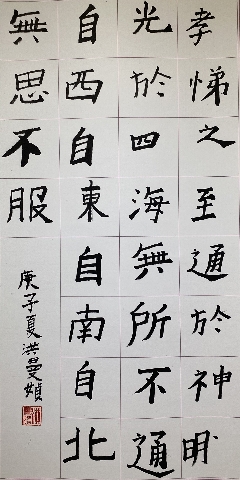 孝悌之至通於神明
光於四海無所不通
自西自東自南自北
無思不服
庚子夏洪曼嬪